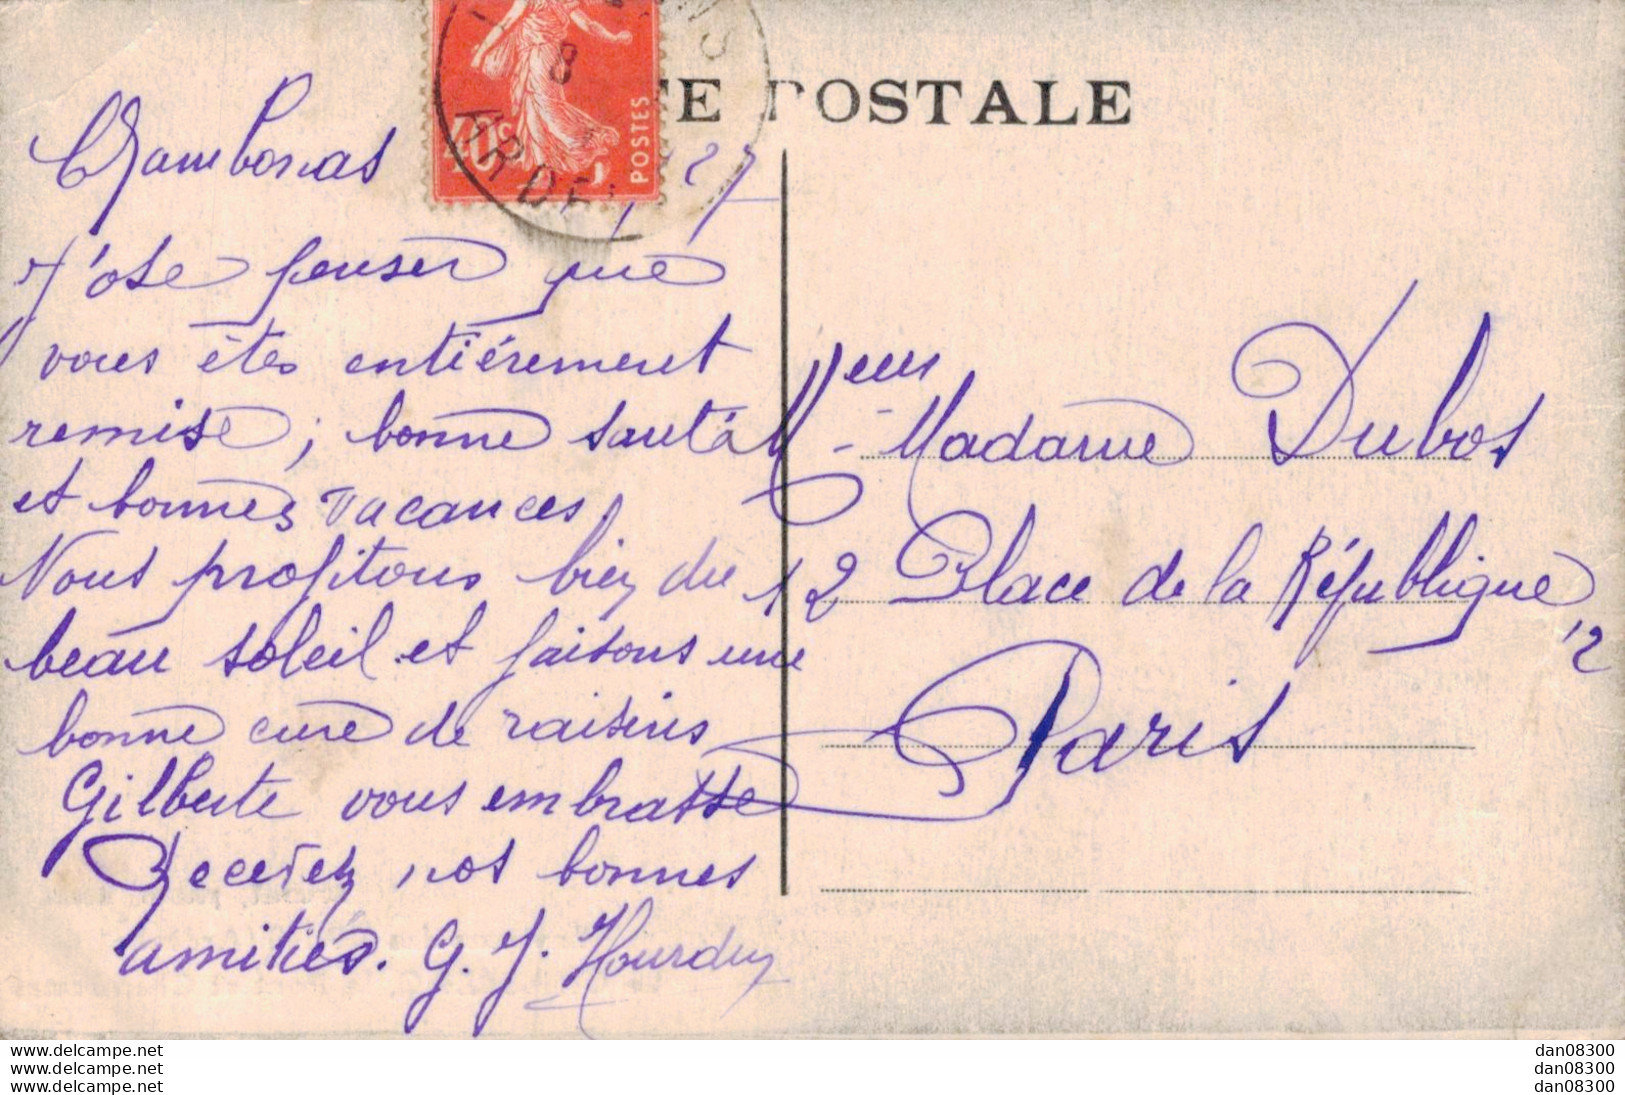 POSTALE
POSTES
40c
ARDE
8
Chambonas
27
J'ose penser que
vous êtes entiérement
remise, bonne santé
et bonnes vacances,
Nous profitons bien du
beau soleil et faisons une
bonne cure de raisins
Gilberte vous embrasse
Recevez nos bonnes
amitiés. G. J. Hourdin
Madame Dubos
12 Place de la République
12
Paris
delcampe.net
delcampe.net
delcampe.net
dan08300
dan08300
dan08300